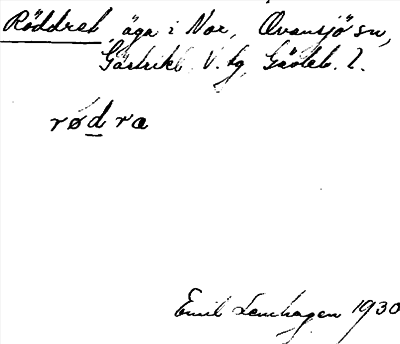 Röddret, äga i Nor, Ovansjö sn,
Gästrikl. V. tg, Gävleb. l.
rødra
Emil Lenhagen 1930